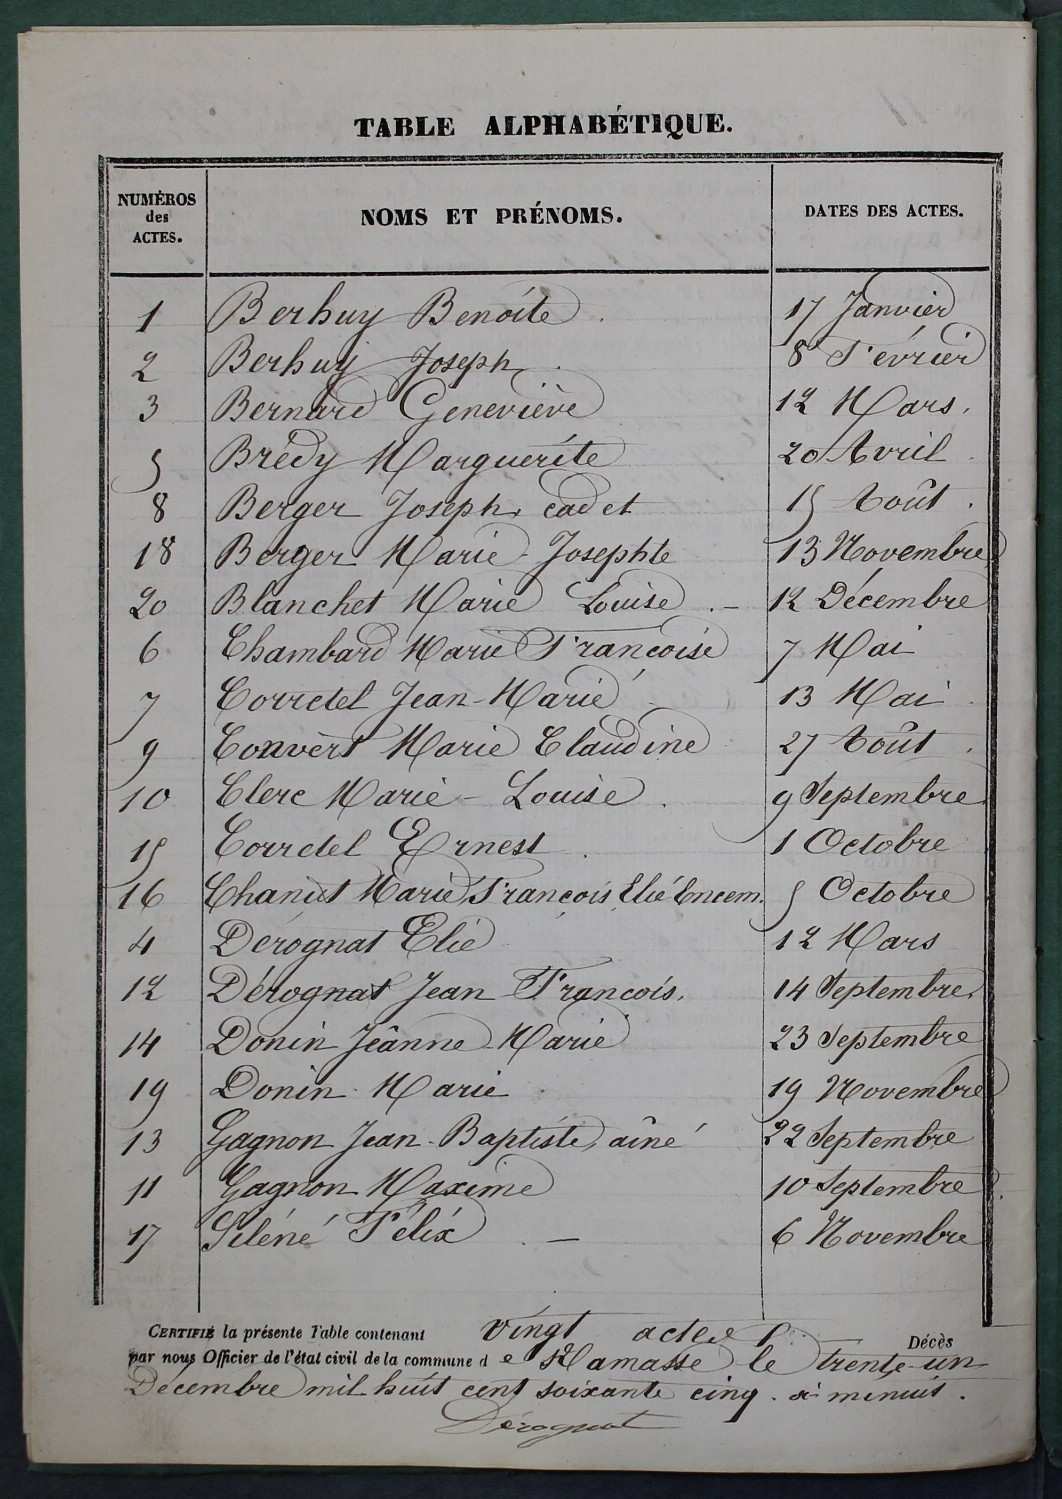 TABLE ALPHABÉTIQUE.
NUMÉROS des ACTES.
NOMS ET PRÉNOMS.
DATES DES ACTES.
1 Berhuy Benoîte 17 Janvier
2 Berhuy Joseph 8 Février
3 Bernard Geneviève 12 Mars.
5 Brédy Marguerite 20 Avril
8 Berger Joseph, cadet 15 Août.
18 Berger Marie-Josephte 13 Novembre
20 Blanchet Marie Louise 12 Décembre
6 Chambard Marie Françoise 7 Mai
7 Corretel Jean-Marie 13 Mai
9 Convert Marie Claudine 27 Août.
10 Clerc Marie-Louise 9 Septembre
15 Corretel Ernest 1 Octobre
16 Chanut Marie François Elié 5 Octobre
4 Dérognat Elie 12 Mars
12 Dérognat Jean François. 14 Septembre
14 Donin Jeânne-Marie 23 Septembre
19 Donin Marie 19 Novembre
13 Gagnon Jean-Baptiste, aîné 22 Septembre
11 Gagnon Maxime 10 Septembre
17 Féléx 6 Novembre
CERTIFIÉ la présente Table contenant vingt actes Décès
par nous Officier de l'état civil de la commune de le trente-un
Décembre mil-huit cent soixante cinq. à minuit.
Dérognat